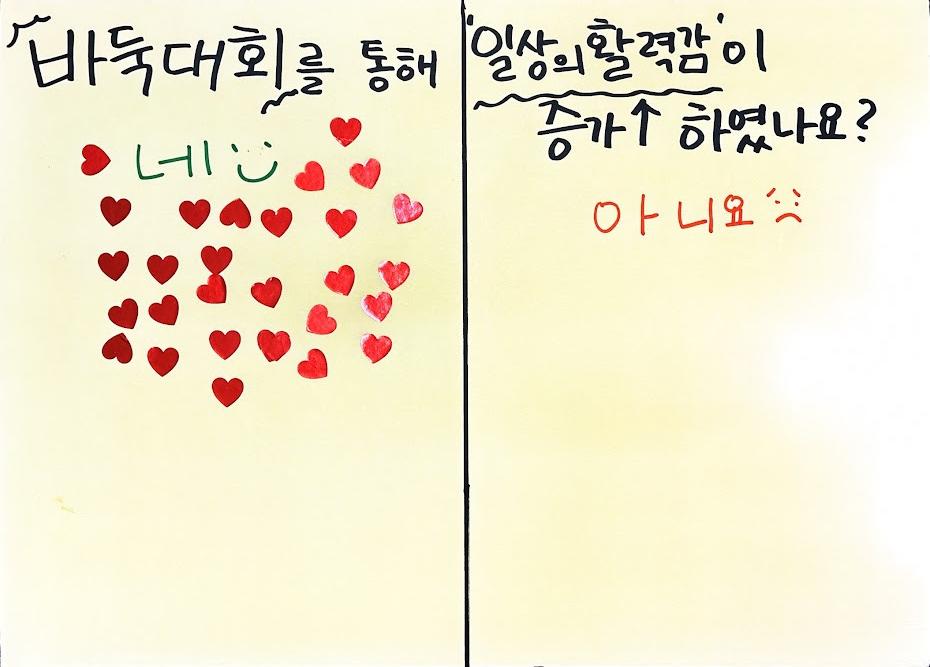 바둑대회를 통해 '일상의 활력감'이
증가↑ 하였나요?
네
아니요